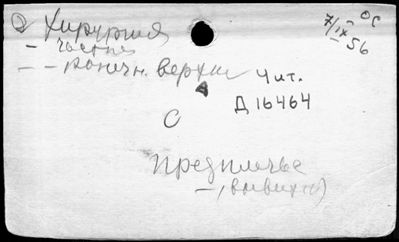 ② Хирургия
7/IX 56 ОС
– частная
– – конечн. верхн.
Чит.
Д 16464
С
предплечье
–, вывихи)